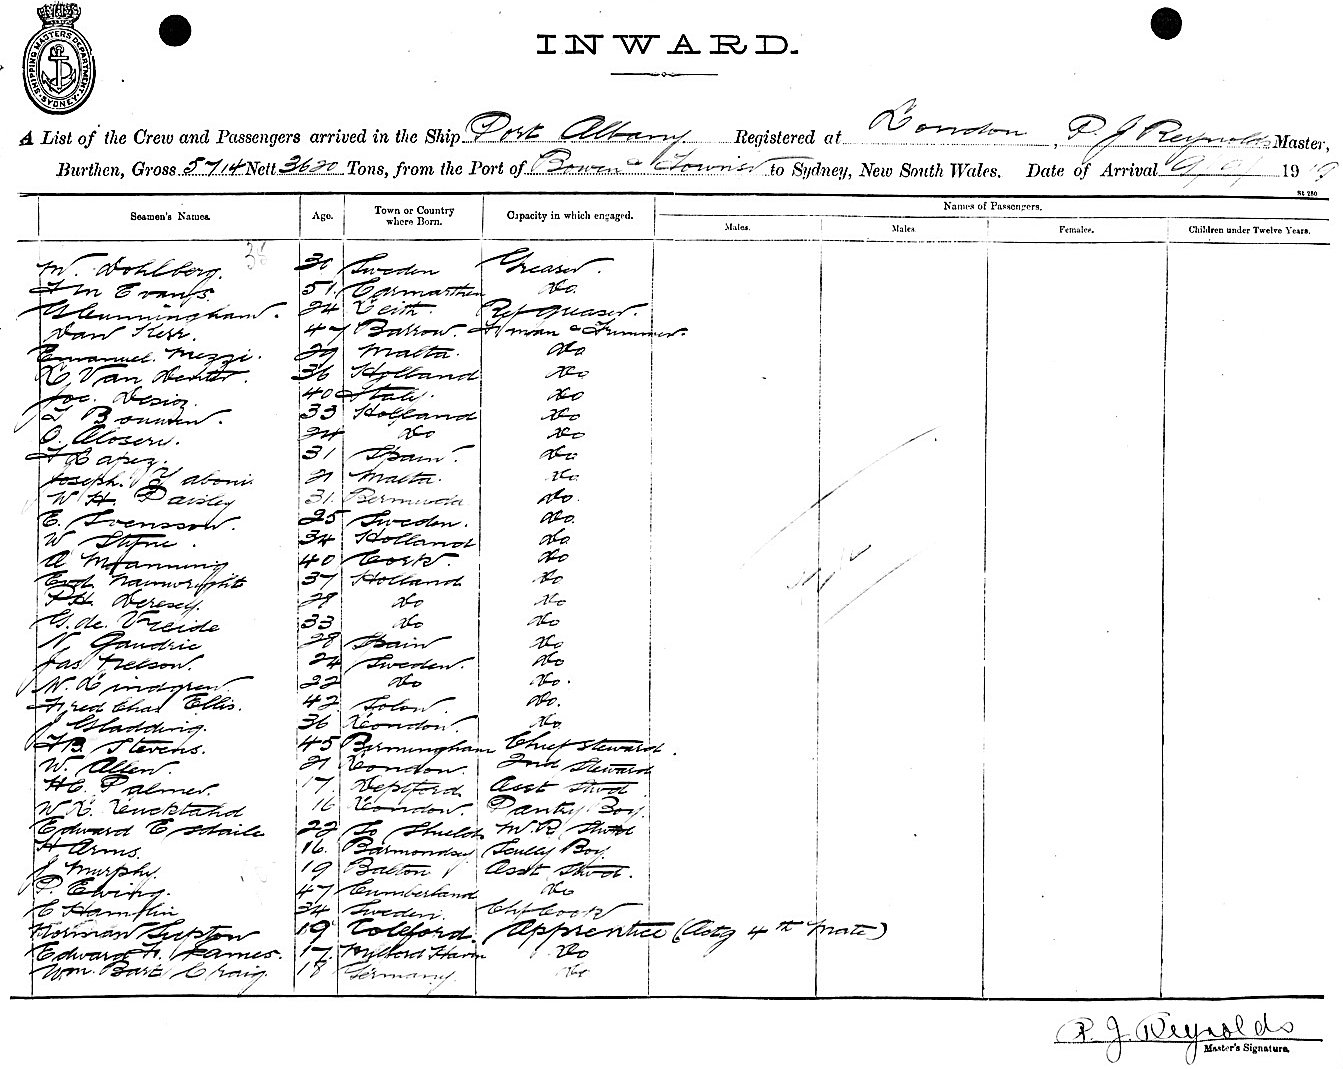 SHIPPING MASTERS DEPARTMENT SYDNEY
INWARD.
A List of the Crew and Passengers arrived in the Ship Port Albany Registered at London, P. J Reynolds Master,
Burthen, Gross 5714 Nett 3620 Tons, from the Port of Bowen & to Sydney, New South Wales. Date of Arrival 19
Sr 280
Seamen's Names. Age. Town or Country where Born. Capacity in which engaged. Names of Passengers.
Males. Males Females. Children under Twelve Years.
W. Dohlberg. 30 Sweden Greaser.
Evans. 51 Carmarthen Do.
Cunningham. 24 Leith. Ref greaser.
Dan Kerr. 47 Barrow. F'man & Trimmer.
Emanuel Mezzi. 29 Malta. Do
Van Denter. 36 Holland Do
Joe. 40 Italy. Do
Bouwen. 33 Holland Do
O. 24 Do Do
31 Spain. Do
Joseph. 21 Malta. Do
W H. Paisley 31. Bermuda Do.
E. Svensson. 25 Sweden. Do.
W Styne. 34 Holland Do
A Manning 40 Cork. Do
Wainwright 37 Holland Do
28 Do Do
G. de Vreide 33 Do Do
N. Gaudrie 28 Spain Do
Jas Nelson. 24 Sweden. Do
N. Lindgren 22 Do Do.
Fred Chas Ellis. 42 Do.
J Gladding. 36 London. Do
Stevens. 45 Birmingham Chief Steward.
W. Allen. 21 London. 2nd Steward
HC. Palmer. 17. Deptford. Asst Stwd.
W. L. 16 London. Pantry Boy.
Edward Esdaile 22 So Shields M.R. Stwd
H Arms. 16. Barmondsey Scully Boy
J Murphy. 19 Bolton Asst Stwd.
P. Ewing. 47 Cumberland Do
C Hamplin 34 Sweden. Chf Cook
Norman Lupton 19 Coleford. Apprentice (Actg 4th Mate)
Edward H. James. 17. Milford Haven Do
Wm. Bart Craig 18 Germany. Do
P. J. Reynolds
Master's Signature.